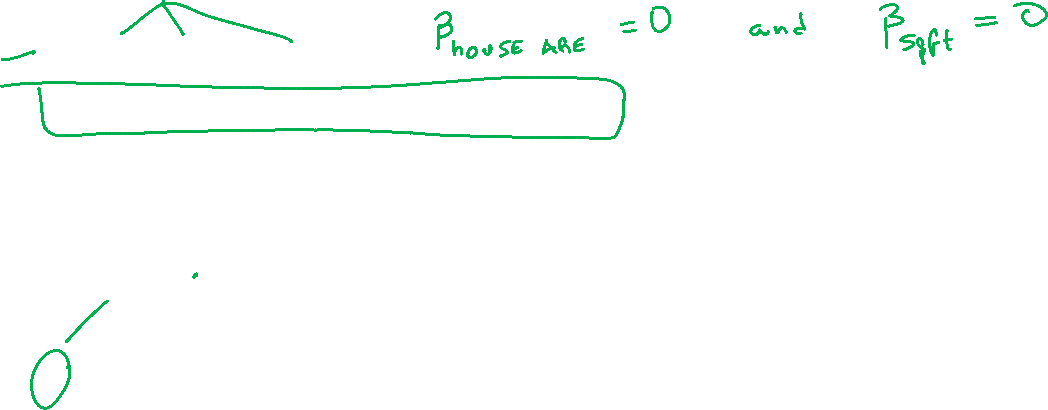 β house ARE = 0 and β sqft = 0